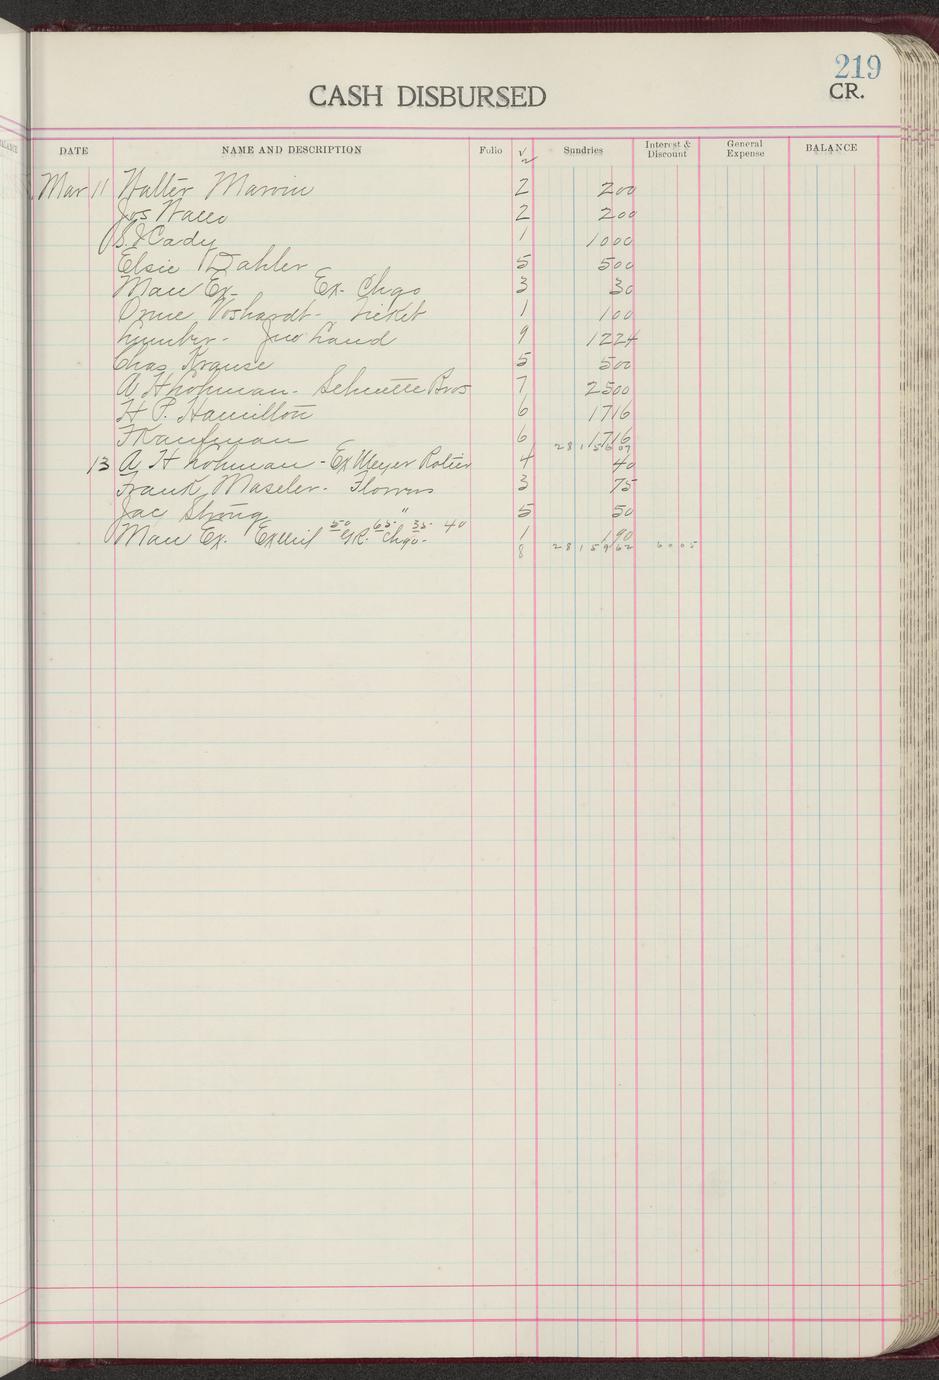 219
CR.
CASH DISBURSED
DATE NAME AND DESCRIPTION Folio √ Sundries Interest & Discount General Expense BALANCE
Mar 11 Walter Marvin 2 200
Jos 2 200
S. J Cady 1 1000
Elsie Dahler 5 500
Man Ex- Ex- Chgo 3 30
Orme Voshardt- Ticket 1 100
Lumber- Jno Laud 9 1224
Chas Krause 5 500
A H Lohman- Schuette Bros 7 2500
H P. Hamilton 6 1716
F Kaufman 6 1716
28 15607
13 A H Lohman - Ex Meyer 4 40
Frank Maseler- Flowers 3 75
Jac Strong " 5 50
Man Ex. 50 G.R. 65 Chgo- 35 40 1 190
8 28 15962 6005